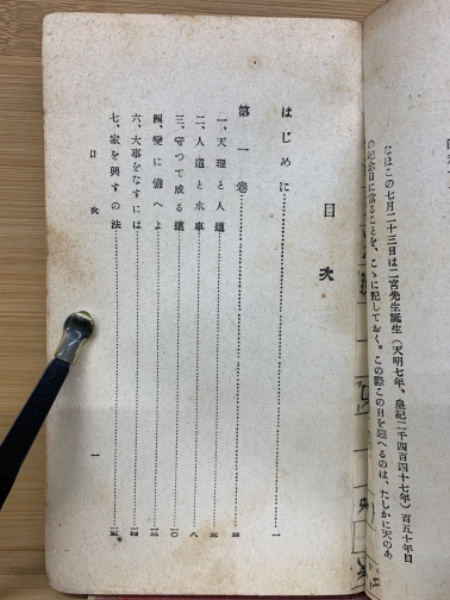 なほこの七月二十三日は二宮先生誕生(天明七年、皇紀二千四百四十七年)百五十年目
の記念日に當ることを、こゝに記しておく。この際この日を迎へるのは、たしかに天のあ
目次
はじめに……一
第一卷……
一、天理と人道……
二、人道と水車……八
三、守つて成る道……一〇
四、變に備へよ……
六、大事をなすには……一四
七、家を興すの法……一五
目次 一